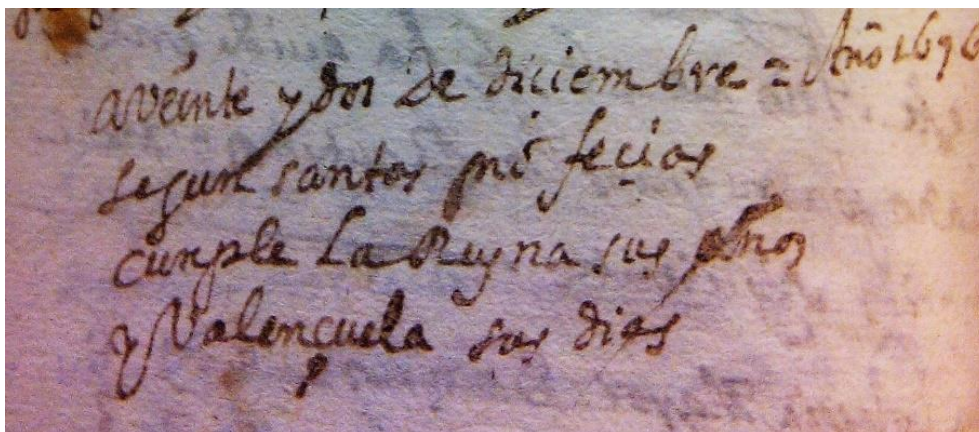 a Veinte y dos de diciembre = Año 1676
segun santos profeçias
cunple La Reyna sus años
y Valençuela sus dias